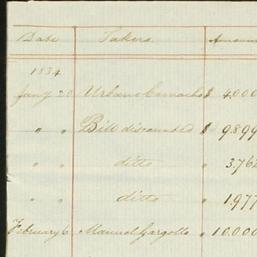 Date Takers Amount
1834
Jany 20 Urbano Camacho $ 4,000
" " Bill discounted $ 9,899
" " ditto " 3,762
" " ditto " 1,977
February 6 Manuel Gargollo " 10,000